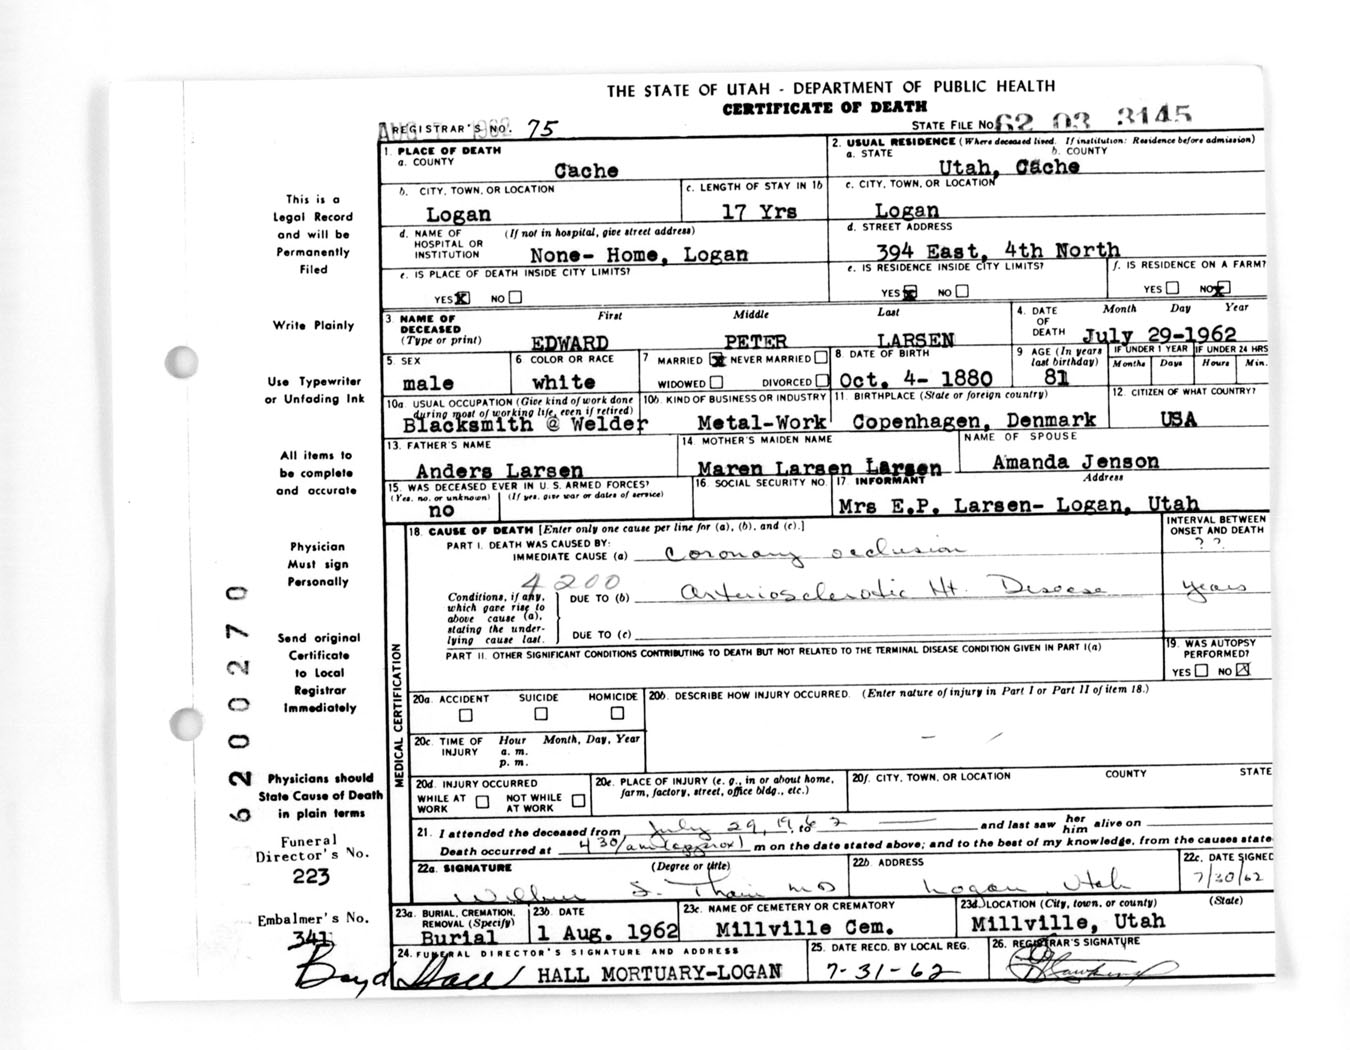 THE STATE OF UTAH - DEPARTMENT OF PUBLIC HEALTH
CERTIFICATE OF DEATH
AUG 1962
REGISTRAR'S NO. 75
STATE FILE NO. 62 03 3145
1. PLACE OF DEATH
a. COUNTY
Cache
2. USUAL RESIDENCE (Where deceased lived. If institution: Residence before admission)
a. STATE b. COUNTY
Utah, Cache
b. CITY, TOWN, OR LOCATION
Logan
c. LENGTH OF STAY IN 1b
17 Yrs
c. CITY, TOWN, OR LOCATION
Logan
d. NAME OF HOSPITAL OR INSTITUTION (If not in hospital, give street address)
None- Home, Logan
d. STREET ADDRESS
394 East, 4th North
e. IS PLACE OF DEATH INSIDE CITY LIMITS?
YES X NO
e. IS RESIDENCE INSIDE CITY LIMITS?
YES X NO
f. IS RESIDENCE ON A FARM?
YES NO X
3. NAME OF DECEASED (Type or print)
First Middle Last
EDWARD PETER LARSEN
4. DATE OF DEATH Month Day Year
July 29-1962
5. SEX
male
6 COLOR OR RACE
white
7 MARRIED X NEVER MARRIED
WIDOWED DIVORCED
8. DATE OF BIRTH
Oct. 4- 1880
9 AGE (In years last birthday)
81
IF UNDER 1 YEAR
Months Days
IF UNDER 24 HRS
Hours Min.
10a. USUAL OCCUPATION (Give kind of work done during most of working life, even if retired)
Blacksmith @ Welder
10b. KIND OF BUSINESS OR INDUSTRY
Metal-Work
11. BIRTHPLACE (State or foreign country)
Copenhagen, Denmark
12. CITIZEN OF WHAT COUNTRY?
USA
13. FATHER'S NAME
Anders Larsen
14. MOTHER'S MAIDEN NAME
Maren Larsen Larsen
NAME OF SPOUSE
Amanda Jenson
15. WAS DECEASED EVER IN U.S. ARMED FORCES?
(Yes, no, or unknown) (If yes, give war or dates of service)
no
16. SOCIAL SECURITY NO.
17. INFORMANT Address
Mrs E.P. Larsen- Logan, Utah
18. CAUSE OF DEATH [Enter only one cause per line for (a), (b), and (c).]
PART I. DEATH WAS CAUSED BY:
IMMEDIATE CAUSE (a) coronary occlusion
INTERVAL BETWEEN ONSET AND DEATH
? ?
4200
Conditions, if any, which gave rise to above cause (a), stating the under-lying cause last.
DUE TO (b) Arteriosclerotic Ht. Disease years
DUE TO (c)
PART II. OTHER SIGNIFICANT CONDITIONS CONTRIBUTING TO DEATH BUT NOT RELATED TO THE TERMINAL DISEASE CONDITION GIVEN IN PART I(a)
19. WAS AUTOPSY PERFORMED?
YES NO X
MEDICAL CERTIFICATION
20a. ACCIDENT SUICIDE HOMICIDE
20b. DESCRIBE HOW INJURY OCCURRED. (Enter nature of injury in Part I or Part II of item 18.)
20c. TIME OF INJURY Hour Month, Day, Year
a. m.
p. m.
20d. INJURY OCCURRED
WHILE AT WORK NOT WHILE AT WORK
20e. PLACE OF INJURY (e. g., in or about home, farm, factory, street, office bldg., etc.)
20f. CITY, TOWN, OR LOCATION COUNTY STATE
21. I attended the deceased from July 29, 1962 to and last saw her him alive on
Death occurred at 430/am (approx) m on the date stated above; and to the best of my knowledge, from the causes state
22a. SIGNATURE (Degree or title)
MD
22b. ADDRESS
Logan, Utah
22c. DATE SIGNED
7/30/62
23a. BURIAL, CREMATION, REMOVAL (Specify)
Burial
23b. DATE
1 Aug. 1962
23c. NAME OF CEMETERY OR CREMATORY
Millville Cem.
23d. LOCATION (City, town, or county) (State)
Millville, Utah
24. FUNERAL DIRECTOR'S SIGNATURE AND ADDRESS
Boyd Hall HALL MORTUARY-LOGAN
25. DATE RECD. BY LOCAL REG.
7-31-62
26. REGISTRAR'S SIGNATURE
This is a
Legal Record
and will be
Permanently
Filed
Write Plainly
Use Typewriter
or Unfading Ink
All items to
be complete
and accurate
Physician
Must sign
Personally
Send original
Certificate
to Local
Registrar
Immediately
Physicians should
State Cause of Death
in plain terms
Funeral
Director's No.
223
Embalmer's No.
341
62 00270